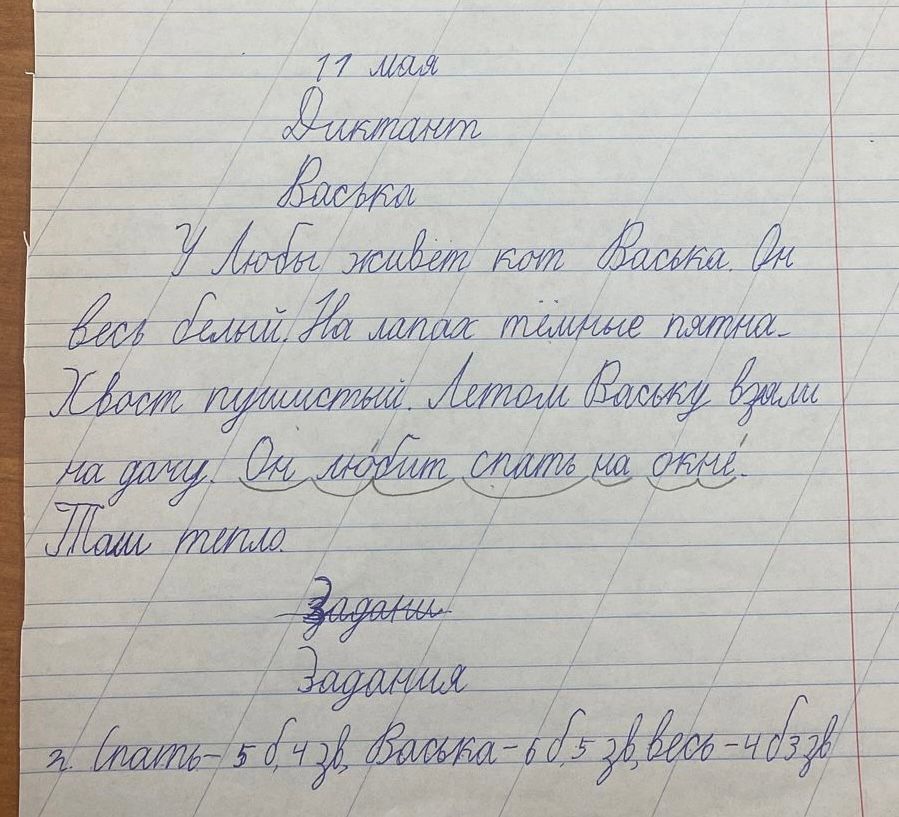 11 мая
Диктант
Васька
У Любы живёт кот Васька. Он
весь белый. На лапах тёмные пятна.
Хвост пушистый. Летом Ваську взяли
на дачу. Он любит спать на окне.
Там тепло.
Задани
Задания
2. Спать - 5 б, 4 зв, Васька - 6 б, 5 зв, весь - 4 б 3 зв